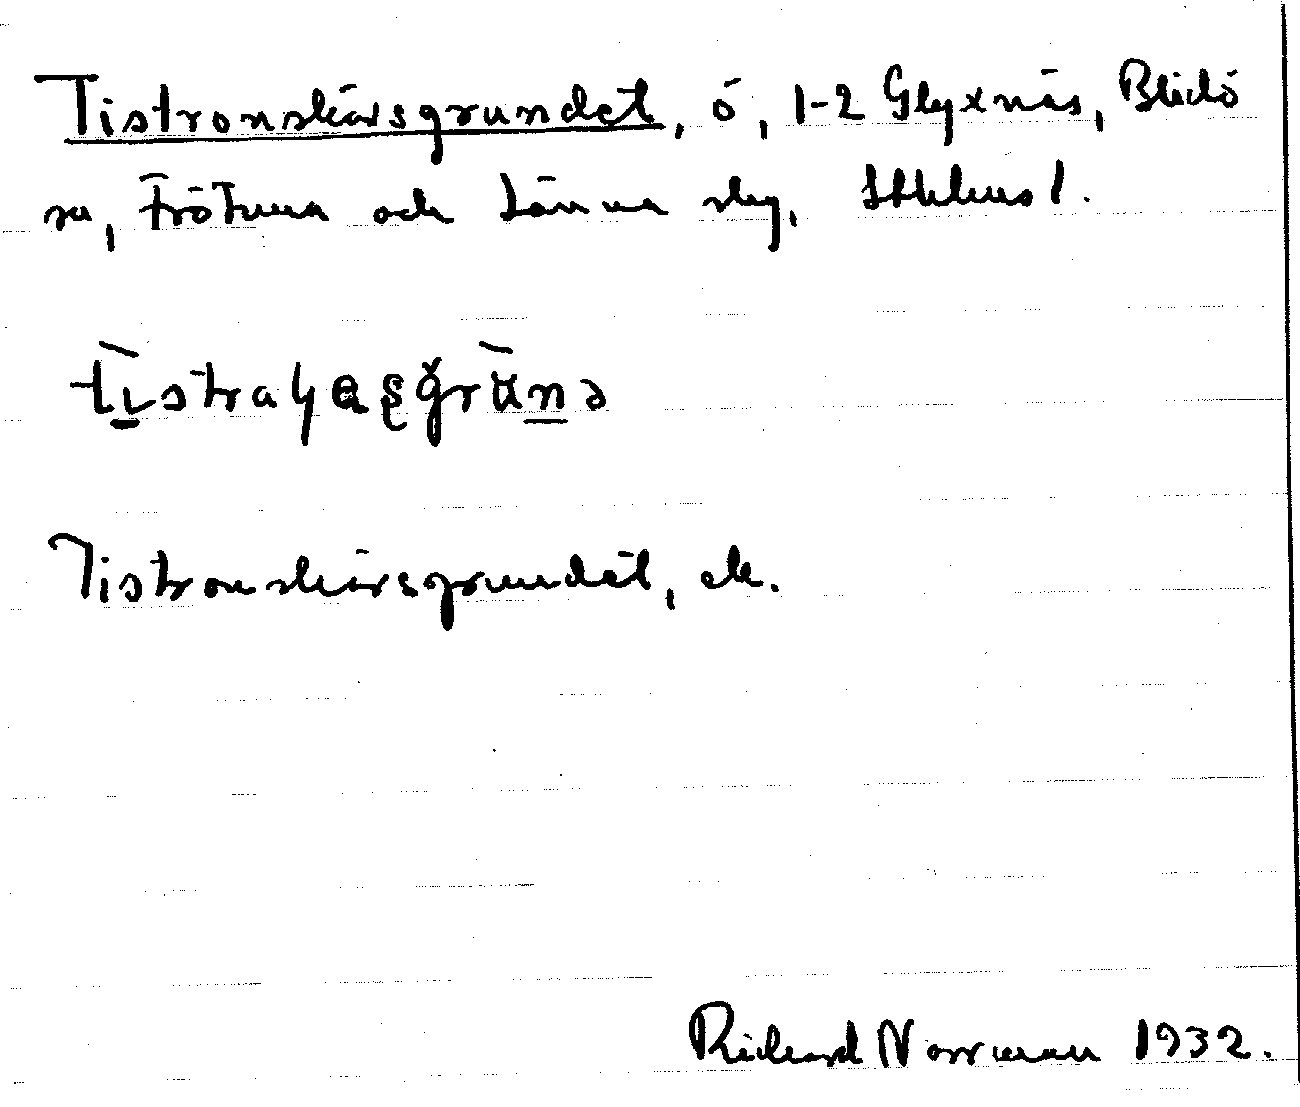 Tistronskärsgrundet, ö, 1-2 Glyxnäs, Blidö
sn, Frötuna och Länna skg, Sthlms l.
Tistronskärsgrundet, ek.
Richard Norrman 1932.